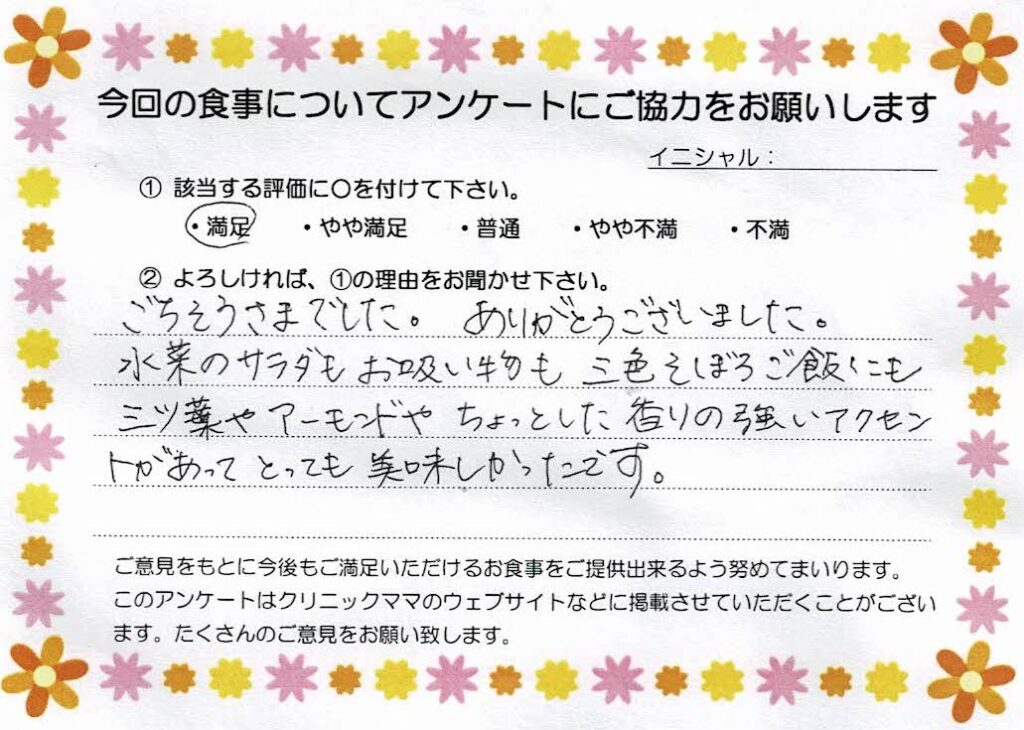 今回の食事についてアンケートにご協力をお願いします
イニシャル：
① 該当する評価に〇を付けて下さい。
・満足 ・やや満足 ・普通 ・やや不満 ・不満
② よろしければ、①の理由をお聞かせ下さい。
ごちそうさまでした。 ありがとうございました。
水菜のサラダも お吸い物も 三色そぼろご飯にも
三ツ葉や アーモンドや ちょっとした 香りの強いアクセン
トがあって とっても 美味しかったです。
ご意見をもとに今後もご満足いただけるお食事をご提供出来るよう努めてまいります。
このアンケートはクリニックママのウェブサイトなどに掲載させていただくことがござい
ます。たくさんのご意見をお願い致します。